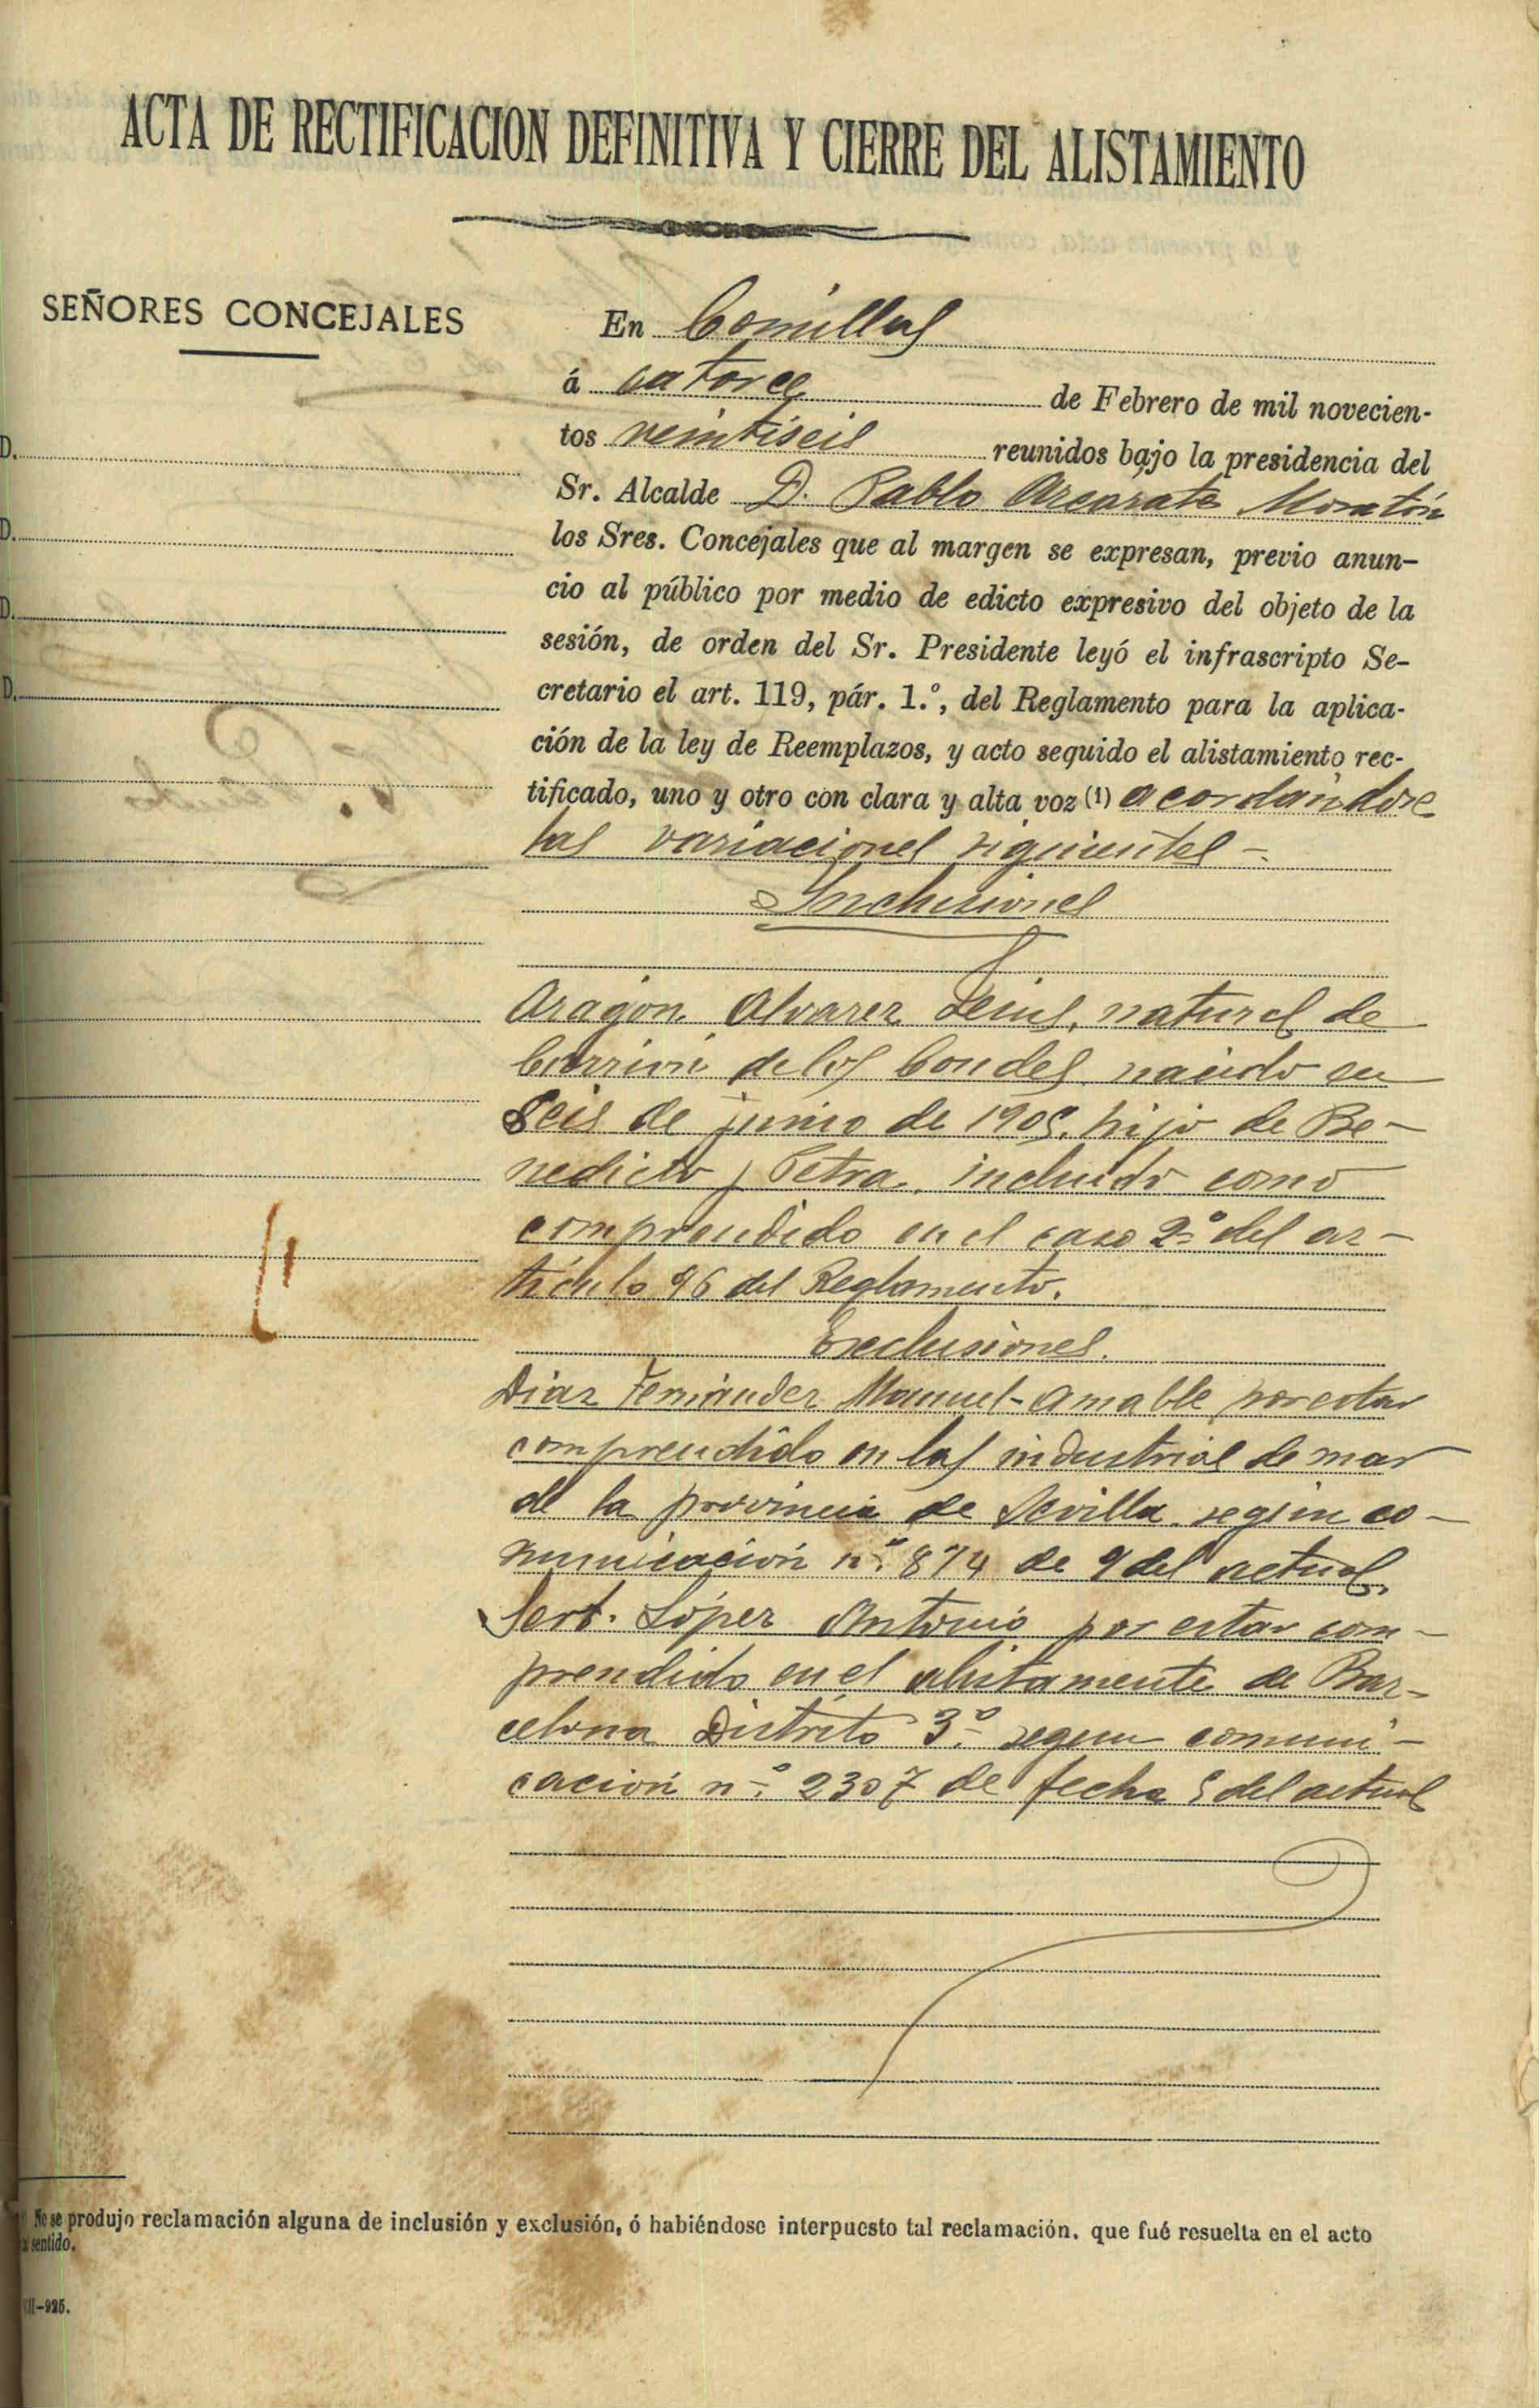 ACTA DE RECTIFICACION DEFINITIVA Y CIERRE DEL ALISTAMIENTO
SEÑORES CONCEJALES
D.
D.
D.
D.
En Comillas
á catorce de Febrero de mil novecien-
tos veintiseis reunidos bajo la presidencia del
Sr. Alcalde D. Pablo
los Sres. Concejales que al margen se expresan, previo anun-
cio al público por medio de edicto expresivo del objeto de la
sesión, de orden del Sr. Presidente leyó el infrascripto Se-
cretario el art. 119, pár. 1.º, del Reglamento para la aplica-
ción de la ley de Reemplazos, y acto seguido el alistamiento rec-
tificado, uno y otro con clara y alta voz (1) acordandose
las variaciones siguientes -
Inclusiones
Aragon Alvarez natural de
Carrión de los Condes nacido en
Seis de junio de 1905, hijo de Be-
nedicto y Petra, incluido como
comprendido en el caso 2º del ar-
tículo 96 del Reglamento.
Exclusiones.
Diaz Fernández Manuel-Amable por estar
comprendido en las industrias de mar
de la provincia de Sevilla según co-
municación nº 874 de 9 del actual
Sert. López Antonio por estar com-
prendido en el alistamiento de Bar-
celona Distrito 3º segun comuni-
cación nº 2307 de fecha del actual
No se produjo reclamación alguna de inclusión y exclusión, ó habiéndose interpuesto tal reclamación, que fué resuelta en el acto
sentido.
-925.